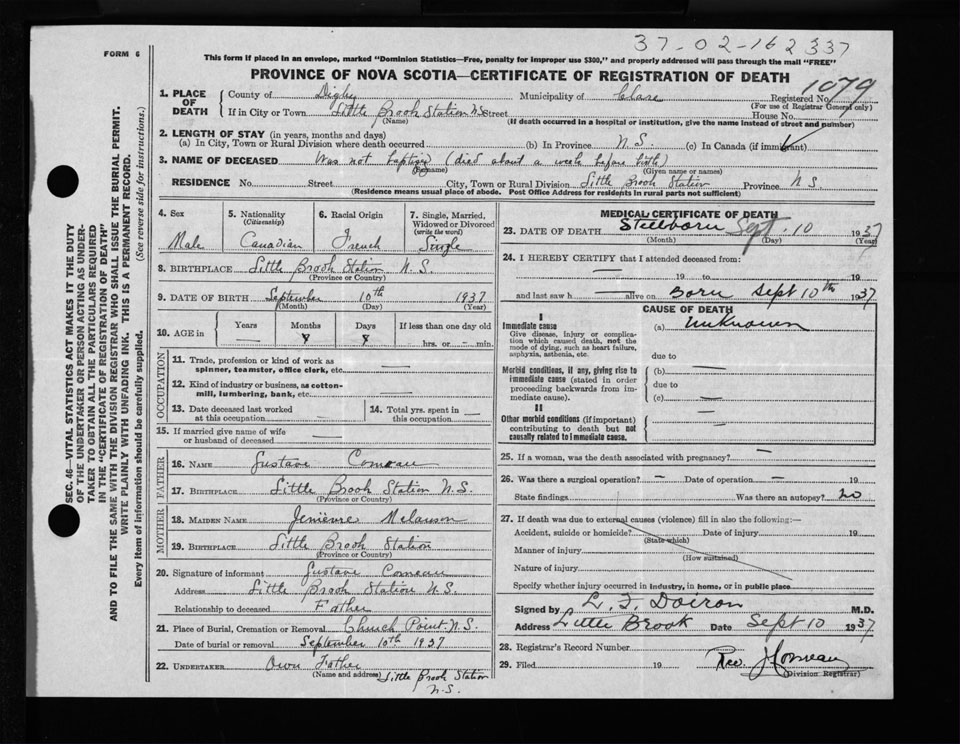 37-02-162337
FORM 6
This form if placed in an envelope, marked "Dominion Statistics—Free, penalty for improper use $300," and properly addressed will pass through the mail "FREE"
PROVINCE OF NOVA SCOTIA—CERTIFICATE OF REGISTRATION OF DEATH
1. PLACE OF DEATH
County of Digby Municipality of Clare Registered No. 1079
(For use of Registrar General only)
If in City or Town Little Brook Station N.S. Street House No.
(Name) (If death occurred in a hospital or institution, give the name instead of street and number)
2. LENGTH OF STAY (in years, months and days)
(a) In City, Town or Rural Division where death occurred (b) In Province N.S. (c) In Canada (if immigrant)
3. NAME OF DECEASED Was not baptized (died about a week before birth)
(Surname) (Given name or names)
RESIDENCE No. Street City, Town or Rural Division Little Brook Station Province N S.
(Residence means usual place of abode. Post Office Address for residents in rural parts not sufficient)
4. Sex
Male
5. Nationality
(Citizenship)
Canadian
6. Racial Origin
French
7. Single, Married, Widowed or Divorced
(write the word)
Single
8. BIRTHPLACE Little Brook Station N.S.
(Province or Country)
9. DATE OF BIRTH September 10th 1937
(Month) (Day) (Year)
10. AGE in
Years Months Days If less than one day old
hrs. or - min.
OCCUPATION
11. Trade, profession or kind of work as spinner, teamster, office clerk, etc. —
12. Kind of industry or business, as cotton-mill, lumbering, bank, etc. —
13. Date deceased last worked at this occupation —
14. Total yrs. spent in this occupation —
15. If married give name of wife or husband of deceased —
FATHER
16. NAME Gustave Comeau
17. BIRTHPLACE Little Brook Station N.S.
(Province or Country)
MOTHER
18. MAIDEN NAME Melanson
19. BIRTHPLACE Little Brook Station
(Province or Country)
20. Signature of informant Gustave Comeau
Address Little Brook Station N.S.
Relationship to deceased Father
21. Place of Burial, Cremation or Removal Church Point N.S.
Date of burial or removal September 10th 1937
22. UNDERTAKER Own Father
(Name and address) Little Brook Station
N.S.
MEDICAL CERTIFICATE OF DEATH
23. DATE OF DEATH Stillborn Sept. 10 1937
(Month) (Day) (Year)
24. I HEREBY CERTIFY that I attended deceased from:
— 19 to — 19
and last saw h — alive on Born Sept 10th 1937
CAUSE OF DEATH
I
Immediate cause
Give disease, injury or complication which caused death, not the mode of dying, such as heart failure, asphyxia, asthenia, etc.
(a) Unknown
due to
Morbid conditions, if any, giving rise to immediate cause (stated in order proceeding backwards from immediate cause).
(b) —
due to
(c) —
II
Other morbid conditions (if important) contributing to death but not causally related to immediate cause.
25. If a woman, was the death associated with pregnancy? —
26. Was there a surgical operation? — Date of operation — 19
State findings Was there an autopsy? no
27. If death was due to external causes (violence) fill in also the following:—
Accident, suicide or homicide? Date of injury 19
(State which)
Manner of injury
(How sustained)
Nature of injury
Specify whether injury occurred in industry, in home, or in public place
Signed by L. F. Doiron M.D.
Address Little Brook Date Sept 10 1937
28. Registrar's Record Number
29. Filed 19 Rev. J Comeau
(Division Registrar)
SEC. 46—VITAL STATISTICS ACT MAKES IT THE DUTY
OF THE UNDERTAKER OR PERSON ACTING AS UNDER-
TAKER TO OBTAIN ALL THE PARTICULARS REQUIRED
IN THE "CERTIFICATE OF REGISTRATION OF DEATH"
AND TO FILE THE SAME WITH THE DIVISION REGISTRAR WHO SHALL ISSUE THE BURIAL PERMIT.
WRITE PLAINLY WITH UNFADING INK. THIS IS A PERMANENT RECORD.
Every item of information should be carefully supplied. (See reverse side for instructions.)